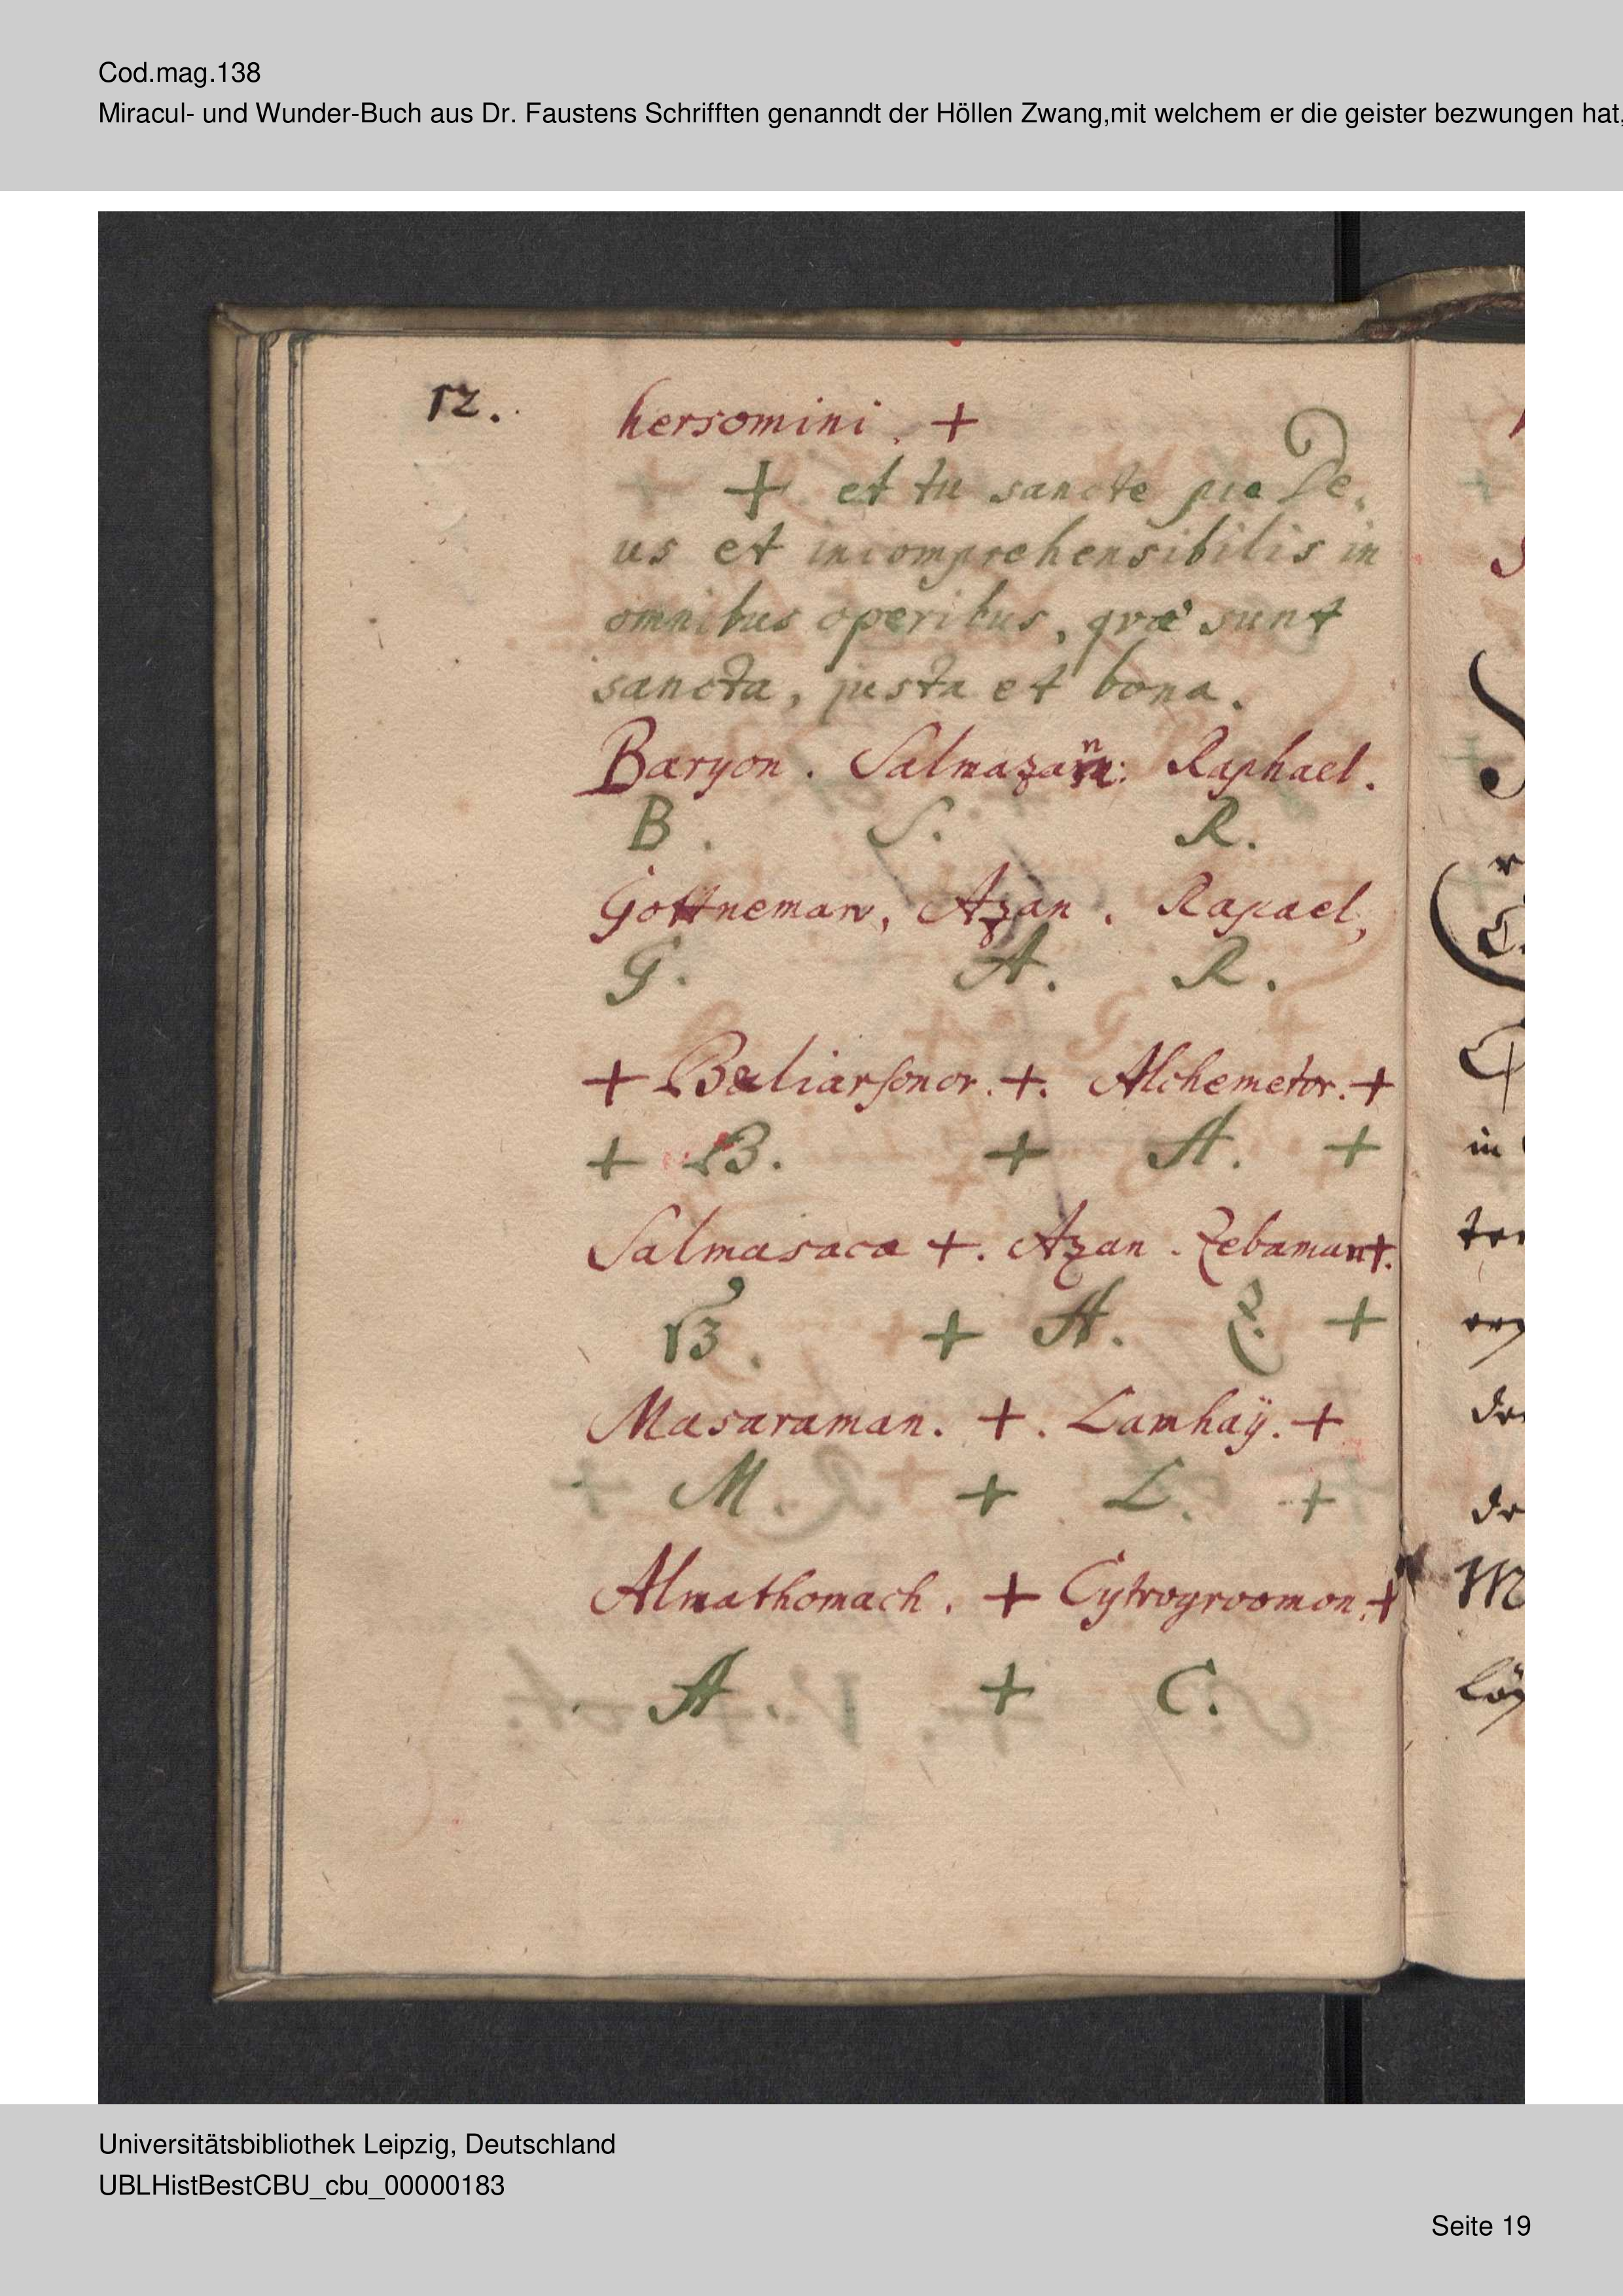 Cod.mag.138
Miracul- und Wunder-Buch aus Dr. Faustens Schrifften genanndt der Höllen Zwang,mit welchem er die geister bezwungen hat,
12.
hersomini. +
+ et tu sancte pie De,
us et incomprehensibilis in
omnibus operibus, qvæ sunt
sancta, justa et bona.
Baryon. Salmazan: Raphael.
B. S. R.
Gottneman, Azan. Rapael,
G. A. R.
+ Beliarsonor. +. Alchemetor. +
+ B. + A. +
Salmasaca +. Azan. Zebaman+.
B. + A. Z. +
Masaraman. +. Lamhaÿ. +
+ M. + L. +
Almathomach. + Cytrogroomon. +
A + C.
Universitätsbibliothek Leipzig, Deutschland
UBLHistBestCBU_cbu_00000183
Seite 19